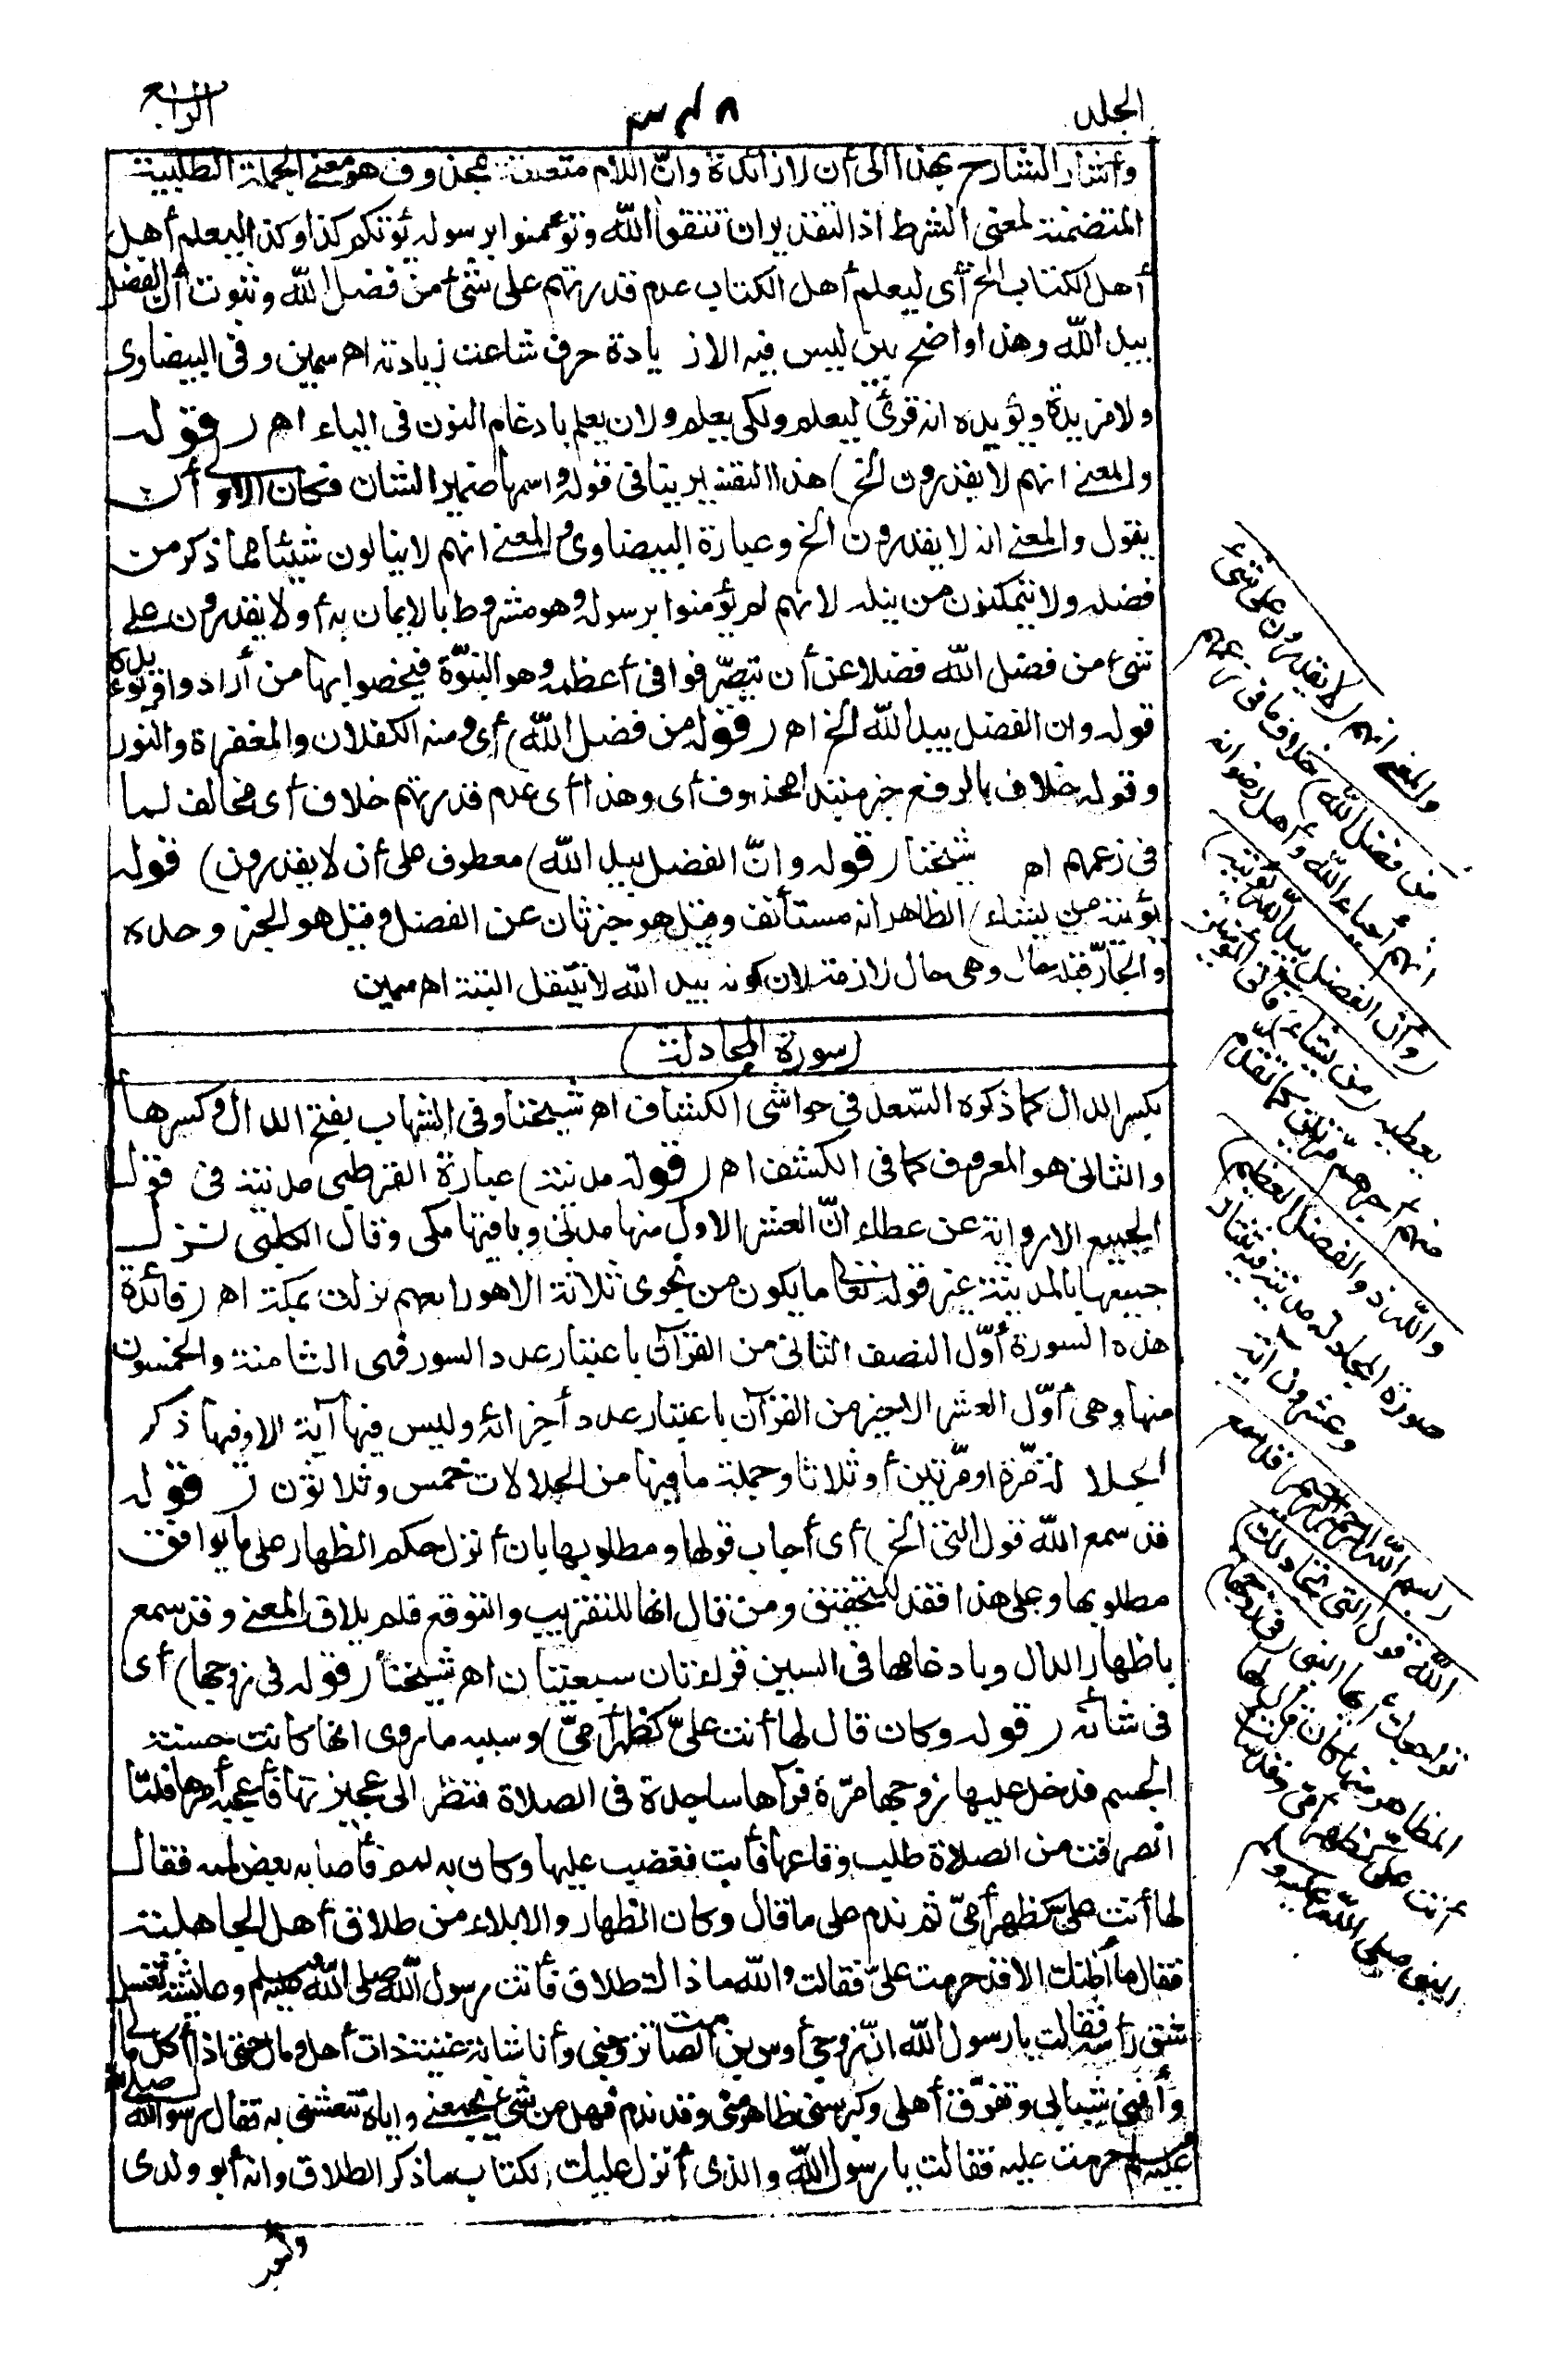 الجلد
٣٠٨
الرابع
وأشار الشارح بهذا الى أن لا زائدة وانّ اللام متعلقة بمحذوف هو معنى الجملة الطلبية
المتضمنة لمعنى الشرط اذ التقدير ان تتقوا الله وتؤمنوا برسوله يؤتكم كذا وكذا ليعلم أهل
أهل الكتاب الخ أى ليعلم أهل الكتاب عدم قدرتهم على شئ من فضل الله وثبوت أن الفضل
بيد الله وهذا واضح بين ليس فيه الا ز يادة حرف شاعت زيادته اهـ سمين وفى البيضاوى
ولا مزيدة ويؤيده انه قرئ ليعلم ولكى يعلم ولان يعلم بادغام النون فى الياء اهـ (قوله
والمعنى انهم لا يقدرون الخ) هذا التقدير ينافى قوله واسمها ضمير الشان فكان الاولى أن
يقول والمعنى انه لا يقدرون الخ وعبارة البيضاوى والمعنى انهم لا ينالون شيئا مما ذكر من
فضله ولا يتمكنون من نيله لانهم لم يؤمنوا برسوله وهو مشروط بالايمان به أو لا يقدرون على
شئ من فضل الله فضلا عن أن يتصرّفوا فى أعظمه وهو النبوّة فيخصوا بها من أرادوا ويؤيده
قوله وان الفضل بيد الله الخ اهـ (قوله من فضل الله) أى ومنه الكفلان والمغفرة والنور
وقوله خلاف بالرفع خبر مبتدا محذوف أى وهذا أى عدم قدرتهم خلاف أى مخالف لما
فى زعمهم اهـ شيخنا (قوله وانّ الفضل بيد الله) معطوف على أن لا يقدرون (قوله
يؤتيه من يشاء) الظاهر انه مستأنف وقيل هو خبر ثان عن الفضل وقيل هو الخبر وحده
والجارّ قبله حال وهى حال لازمة لان كونه بيد الله لا ينتقل البتة اهـ سمين
(سورة المجادلة)
بكسر الدال كما ذكره السّعد فى حواشى الكشاف اهـ شيخنا وفى الشهاب بفتح الدال وكسرها
والثانى هو المعروف كما فى الكشف اهـ (قوله مدنية) عبارة القرطبى مدنية فى قول
الجميع الا رواية عن عطاء انّ العشر الاول منها مدنىّ وباقيها مكى وقال الكلبى نزل
جميعها بالمدينة غير قوله تعالى ما يكون من نجوى ثلاثة الا هو رابعهم نزلت بمكة اهـ (فائدة
هذه السورة أوّل النصف الثانى من القرآن باعتبار عدد السور فهى الثامنة والخمسون
منها وهى أوّل العشر الاخير من القرآن باعتبار عدد أجزائه وليس فيها آية الا وفيها ذكر
الجلا لة مرّة أو مرّتين أو ثلاثا وجملة ما فيها من الجلالات خمس وثلاثون (قوله
قد سمع الله قول التى الخ) أى أجاب قولها ومطلوبها بان أنزل حكم الظهار على ما يوافق
مطلوبها وعلى هذا فقد للتحقيق ومن قال انها للتقريب والتوقع فلم يلاق المعنى وقد سمع
باظهار الدال وبادغامها فى السين قراءتان سبعيتان اهـ شيخنا (قوله فى زوجها) أى
فى شأنه (قوله وكان قال لها أنت علىّ كظهر أمىّ) وسببه ما روى انها كانت حسنة
الجسم فدخل عليها زوجها مرّة فرآها ساجدة فى الصلاة فنظر الى عجيزتها فأعجبه أمرها فلمّا
انصرفت من الصلاة طلب وقاعها فأبت فغضب عليها وكان به لمم فأصابه بعض لممه فقال
لها أنت علىّ كظهر أمىّ ثم ندم على ما قال وكان الظهار والايلاء من طلاق أهل الجاهلية
فقال ما أظنك الا قد حرمت علىّ فقالت والله ما ذاك طلاق فأتت رسول الله صلى الله عليه وسلم وعائشة تغسل
شق رأسه فقالت يا رسول الله انّ زوجى أوس بن الصامت تزوجنى وأنا شابة غنية ذات أهل ومال حتى اذا أكل مالى
وأفنى شبابى وتفرّق أهلى وكبر سنى ظاهر منى وقد ندم فهل من شئ يجمعنى واياه تنعشنى به فقال رسول الله صلى الله
عليه وسلم حرمت عليه فقالت يا رسول الله والذى أنزل عليك الكتاب ما ذكر الطلاق وانه أبو ولدى
والمعنى انهم (لا يقدرون على شئ
من فضل الله) خلاف ما فى زعمهم
انهم أحباء الله وأهل رضوانه
(وأن الفضل بيد الله يؤتيه)
يعطيه (من يشاء) فآتى المؤمنين
منهم أجرهم مرّتين كما تقدّم
(والله ذو الفضل العظيم)
سورة المجادلة مدنية ثنتان
وعشرون آية
(بسم الله الرحمن الرحيم قد سمع
الله قول التى تجادلك)
تراجعك أيها النبى (فى زوجها)
المظاهر منها كان قال لها
أنت علىّ كظهر أمى وقد سألت
النبى صلى الله عليه وسلم